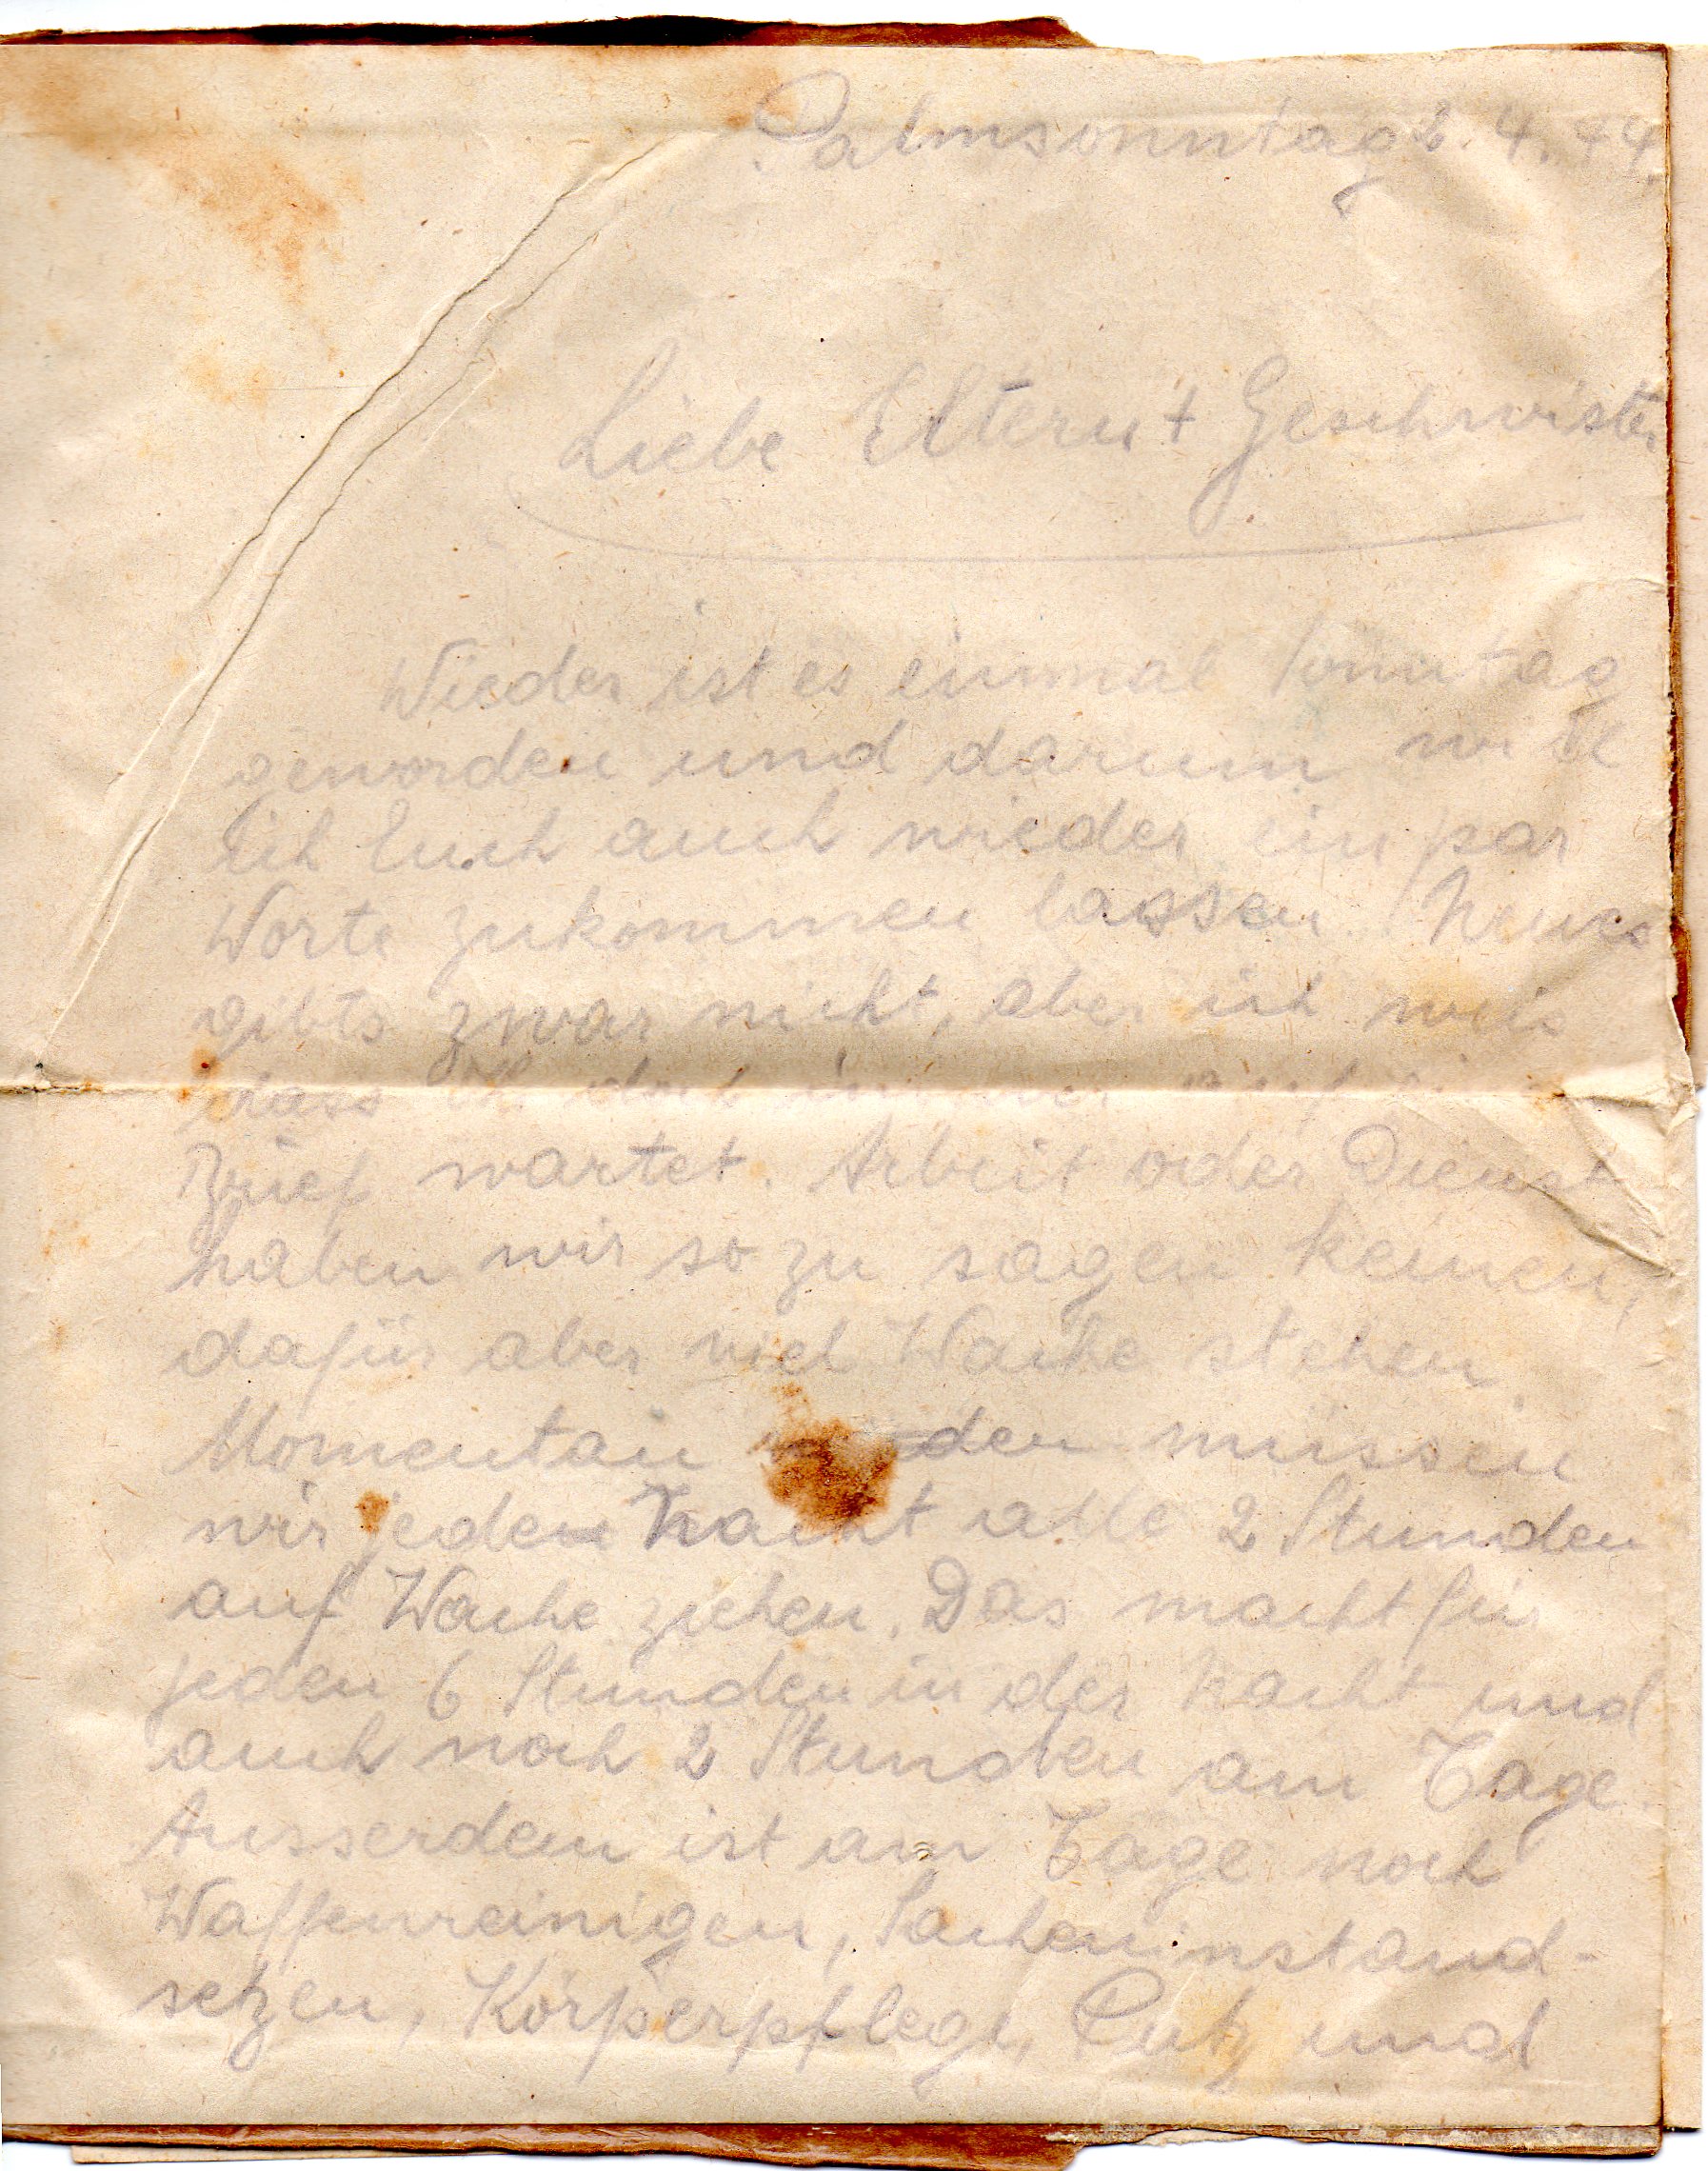 Palmsonntag 2. 4. 44.
Liebe Eltern + Geschwister
Wieder ist es einmal Sonntag
geworden und darum will
ich Euch auch wieder ein par
Worte zukommen lassen. Neues
gibts zwar nicht, aber ich weis
dass Ihr doch immer auf
Brief wartet. Arbeit oder Dienst
haben wir so zu sagen keinen,
dafür aber viel Wache stehen.
Momentan müssen
wir jeden Nacht alle 2 Stunden
auf Wache ziehen. Das macht für
jeden 6 Stunden in der Nacht und
auch noch 2 Stunden am Tage.
Ausserdem ist am Tage noch
Waffenreinigen, Sacheninstand-
setzen, Körperpflege, Putz und